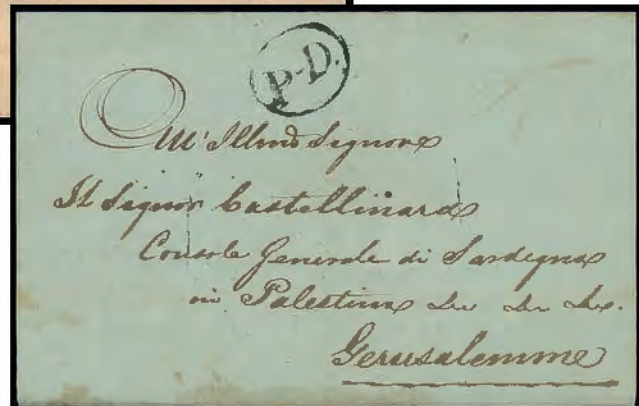 P.D.
All' Illmo Signore
Il Signor Castellinard
Console Generale di Sardegna
in Palestina &c &c &c.
Gerusalemme